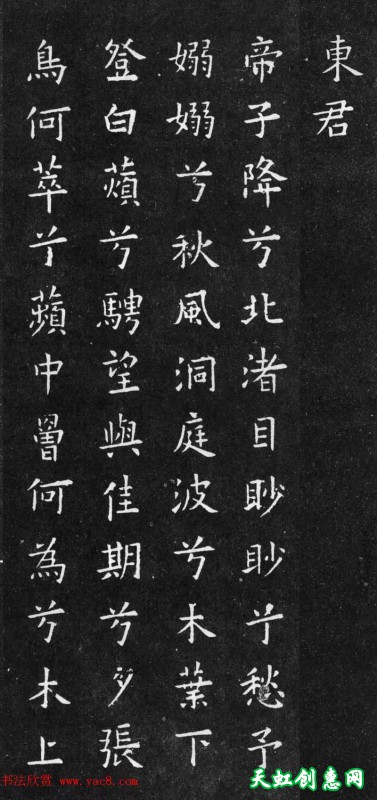 東君
帝子降兮北渚目眇眇兮愁予
嫋嫋兮秋風洞庭波兮木葉下
登白薠兮騁望與佳期兮夕張
鳥何萃兮蘋中罾何為兮木上
书法欣赏 www.yac8.com
天虹创惠网